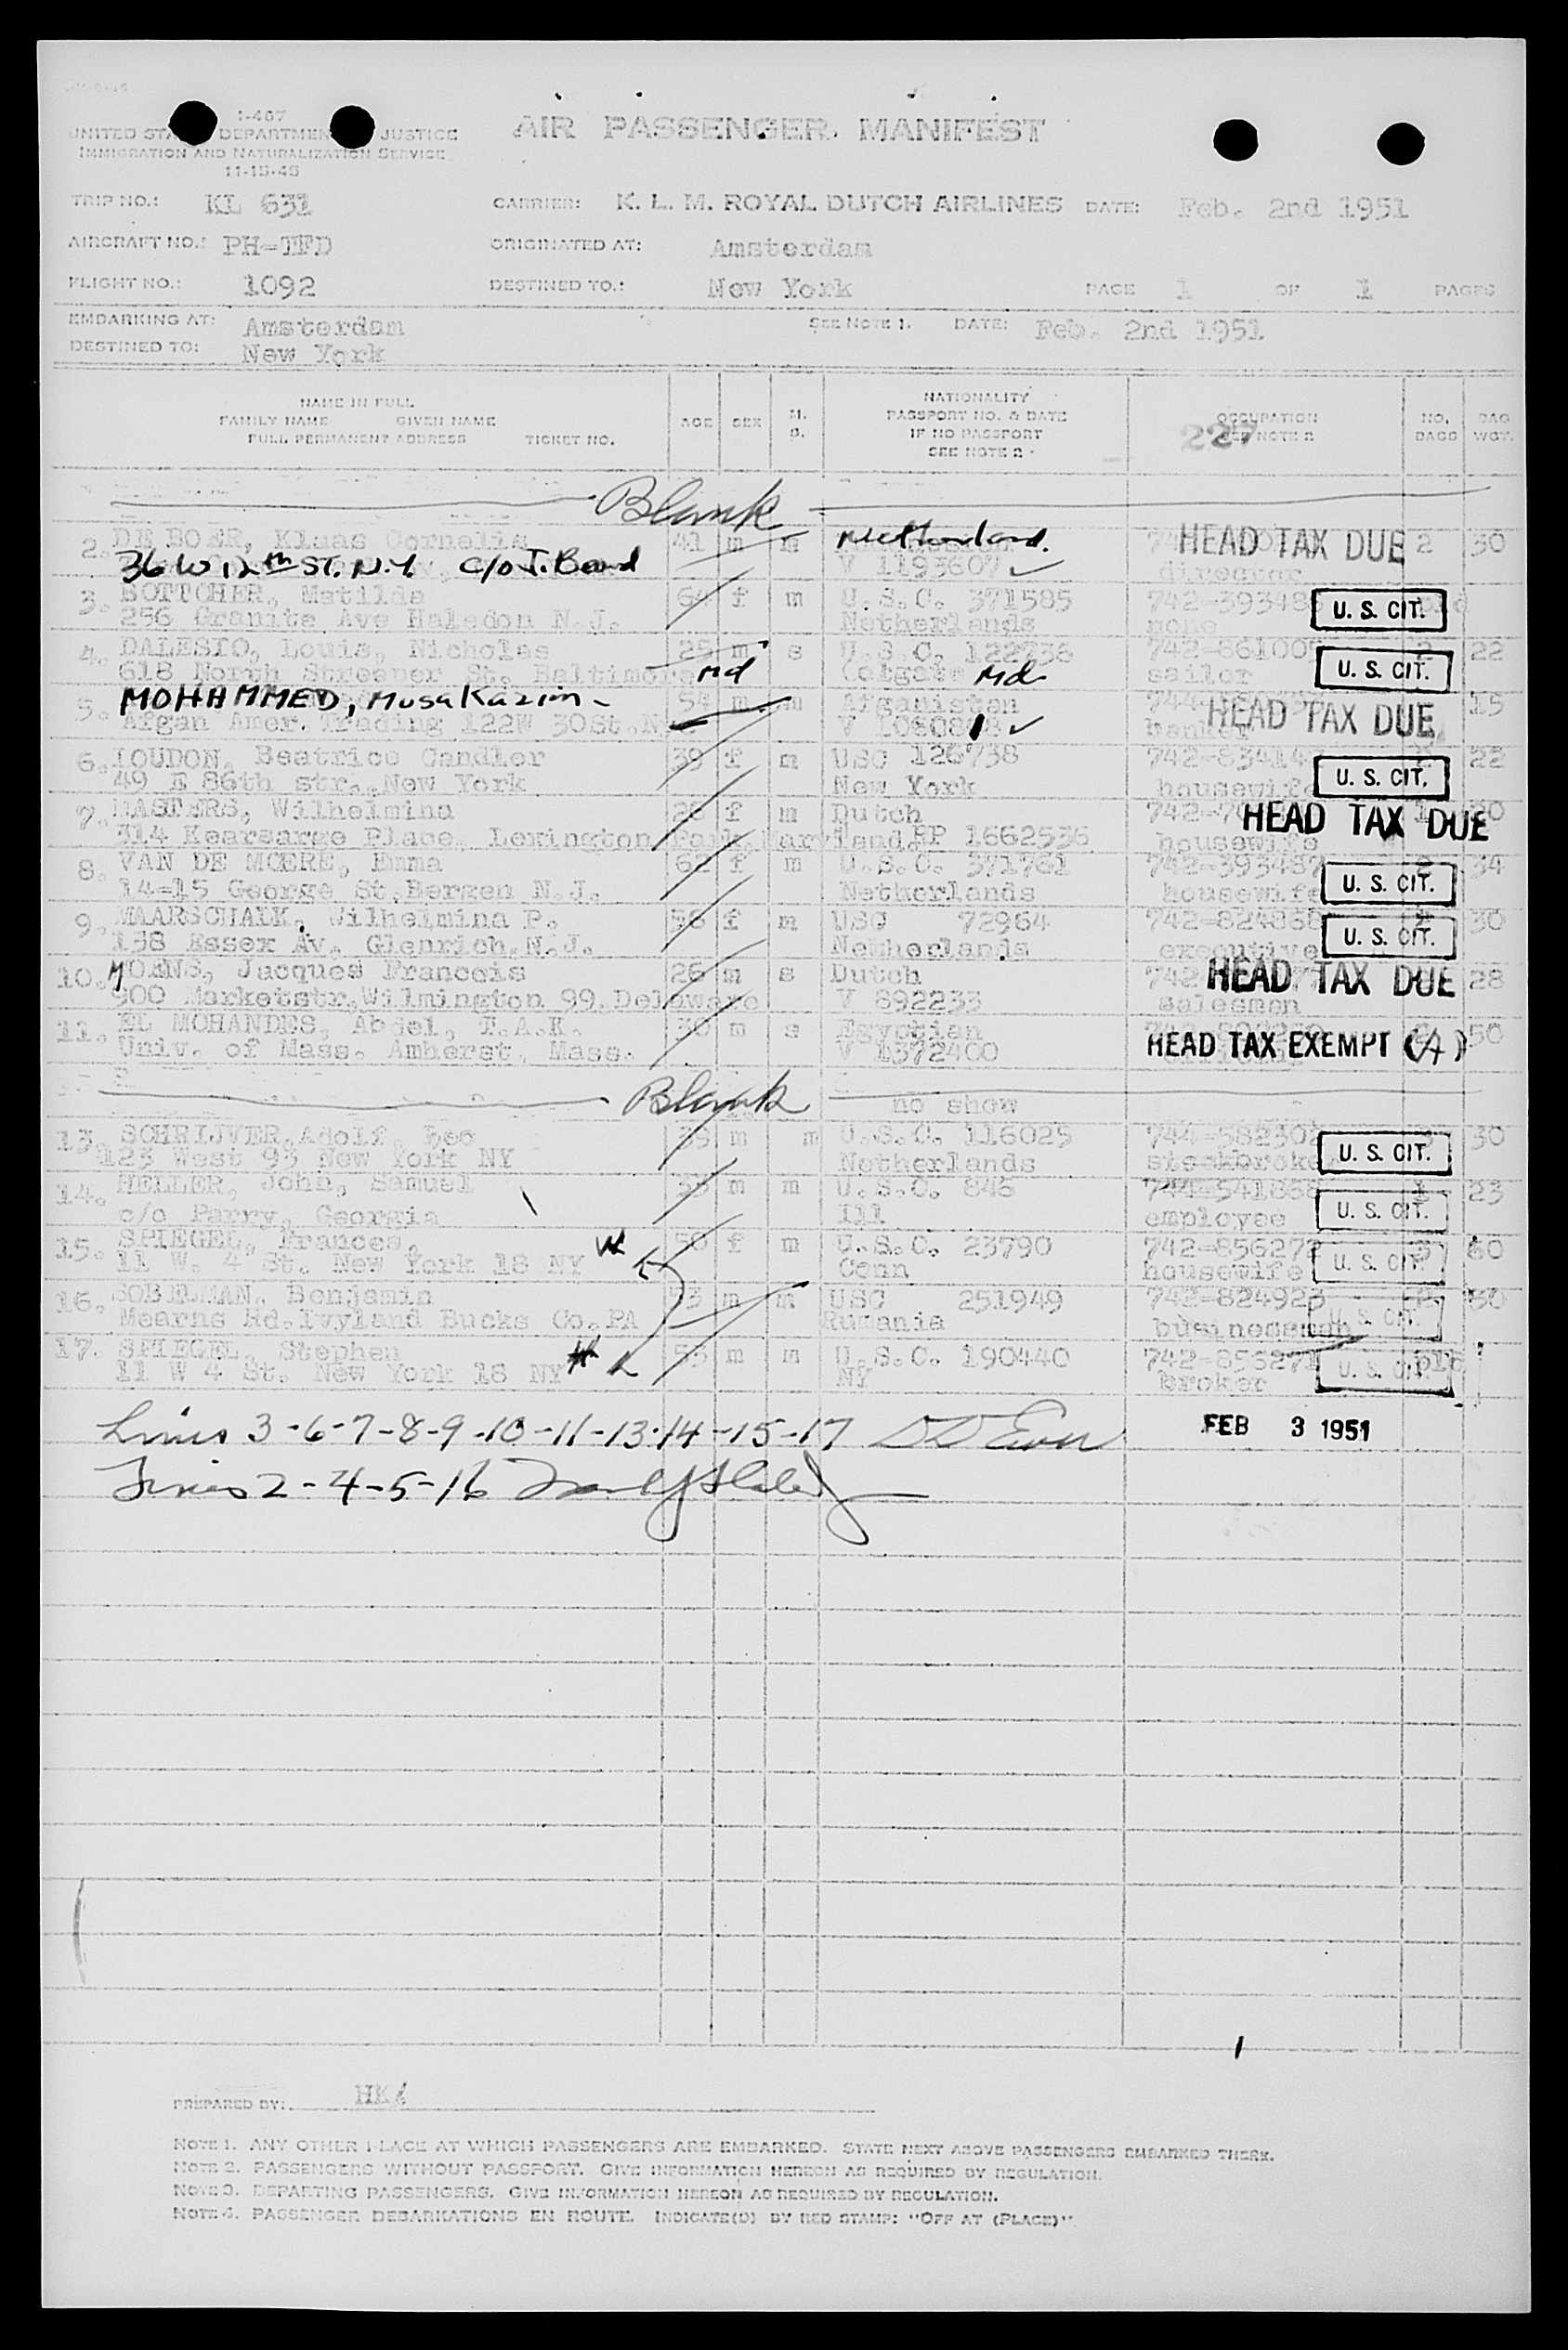 I-467
UNITED STATES DEPARTMENT JUSTICE
IMMIGRATION AND NATURALIZATION SERVICE
11-15-45
AIR PASSENGER MANIFEST
TRIP NO.: KL 631 CARRIER: K. L. M. ROYAL DUTCH AIRLINES DATE: Feb. 2nd 1951
AIRCRAFT NO.: PH-TFD ORIGINATED AT: Amsterdam
FLIGHT NO.: 1092 DESTINED TO: New York PAGE 1 OF 1 PAGES
EMBARKING AT: Amsterdam SEE NOTE 1. DATE: Feb. 2nd 1951
DESTINED TO: New York
NAME IN FULL
FAMILY NAME GIVEN NAME
FULL PERMANENT ADDRESS TICKET NO.
AGE SEX M. S.
NATIONALITY
PASSPORT NO. & DATE
IF NO PASSPORT
SEE NOTE 2
OCCUPATION
SEE NOTE 2
227
NO. BAGS
BAG WGT.
Blank
2. DE BOER, Klaas Cornelis 41 m m Netherland. HEAD TAX DUE 2 30
36 W 12th ST. N.Y. C/O J. Band V 1193607 director
3. BOTTCHER, Matilda 64 f m U.S.C. 371585 742-39348 U. S. CIT.
256 Granite Ave Haledon N.J. Netherlands none
4. DALESIO, Louis, Nicholas 25 m s U.S.C. 122736 742-86100 U. S. CIT. 2 22
618 North Streeper St. Baltimore Md Md. sailor
5. MOHAMMED, Musa Kazim 54 m m Afganistan HEAD TAX DUE 15
Afgan Amer. Trading 122W 30St.N V banker
6. LOUDON, Beatrice Candler 39 f m USC 126738 742-83414 U. S. CIT. 22
49 E 86th str., New York New York housewife
7. MASTERS, Wilhelmina f m Dutch HEAD TAX DUE
314 Kearsarge Place, Lexington Park, Maryland. PP 1662536 housewife
8. VAN DE MOERE, Emma 62 f m U.S.C. 371761 742-393487 U. S. CIT. 34
14-15 George St. Bergen N.J. Netherlands housewife
9. MAARSCHALK, Wilhelmina P. 56 f m USC 72964 742-824868 U. S. CIT. 30
158 Essex Av. Glenrich, N.J. Netherlands executive
10. MOENS, Jacques Francois 26 m s Dutch HEAD TAX DUE 28
900 Marketstr, Wilmington 99. Delaware V 892233 salesman
11. EL MOHANDES, Abdel, T.A.K. 30 m s Egyptian HEAD TAX EXEMPT (A) 50
Univ. of Mass. Amherst, Mass. V 1372400
Blank no show
13. SCHRIJVER, Adolf, Leo 39 m m U.S.C. 116025 744-582302 U. S. CIT. 30
123 West 93 New York NY Netherlands stockbroke
14. HELLER, John, Samuel m m U.S.C. 846 744-541868 U. S. CIT. 1 23
c/o Parry, Georgia Ill employee
15. SPIEGEL, Frances, 50 f m U.S.C. 23790 742-856272 U. S. CIT. 3 60
11 W. 4 St. New York 18 NY Conn housewife
16. SOBELMAN, Benjamin 53 m m USC 251949 742-824923 U. S. CIT.
Mearns Rd. Ivyland Bucks Co. PA Rumania businessman
17. SPIEGEL, Stephen 55 m m U.S.C. 190440 742-856271 U. S. CIT.
11 W 4 St. New York 18 NY NY broker
Lines 3-6-7-8-9-10-11-13-14-15-17 FEB 3 1951
Lines 2-4-5-16
PREPARED BY: HK
NOTE 1. ANY OTHER PLACE AT WHICH PASSENGERS ARE EMBARKED. STATE NEXT ABOVE PASSENGERS EMBARKED THERE.
NOTE 2. PASSENGERS WITHOUT PASSPORT. GIVE INFORMATION HEREON AS REQUIRED BY REGULATION.
NOTE 3. DEPARTING PASSENGERS. GIVE INFORMATION HEREON AS REQUIRED BY REGULATION.
NOTE 4. PASSENGER DEBARKATIONS EN ROUTE. INDICATE(D) BY RED STAMP: "OFF AT (PLACE)".